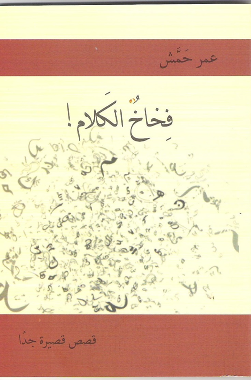 عمر حَمَّش
فِخَاخُ الكَلام !
قصص قصيرة جدًا